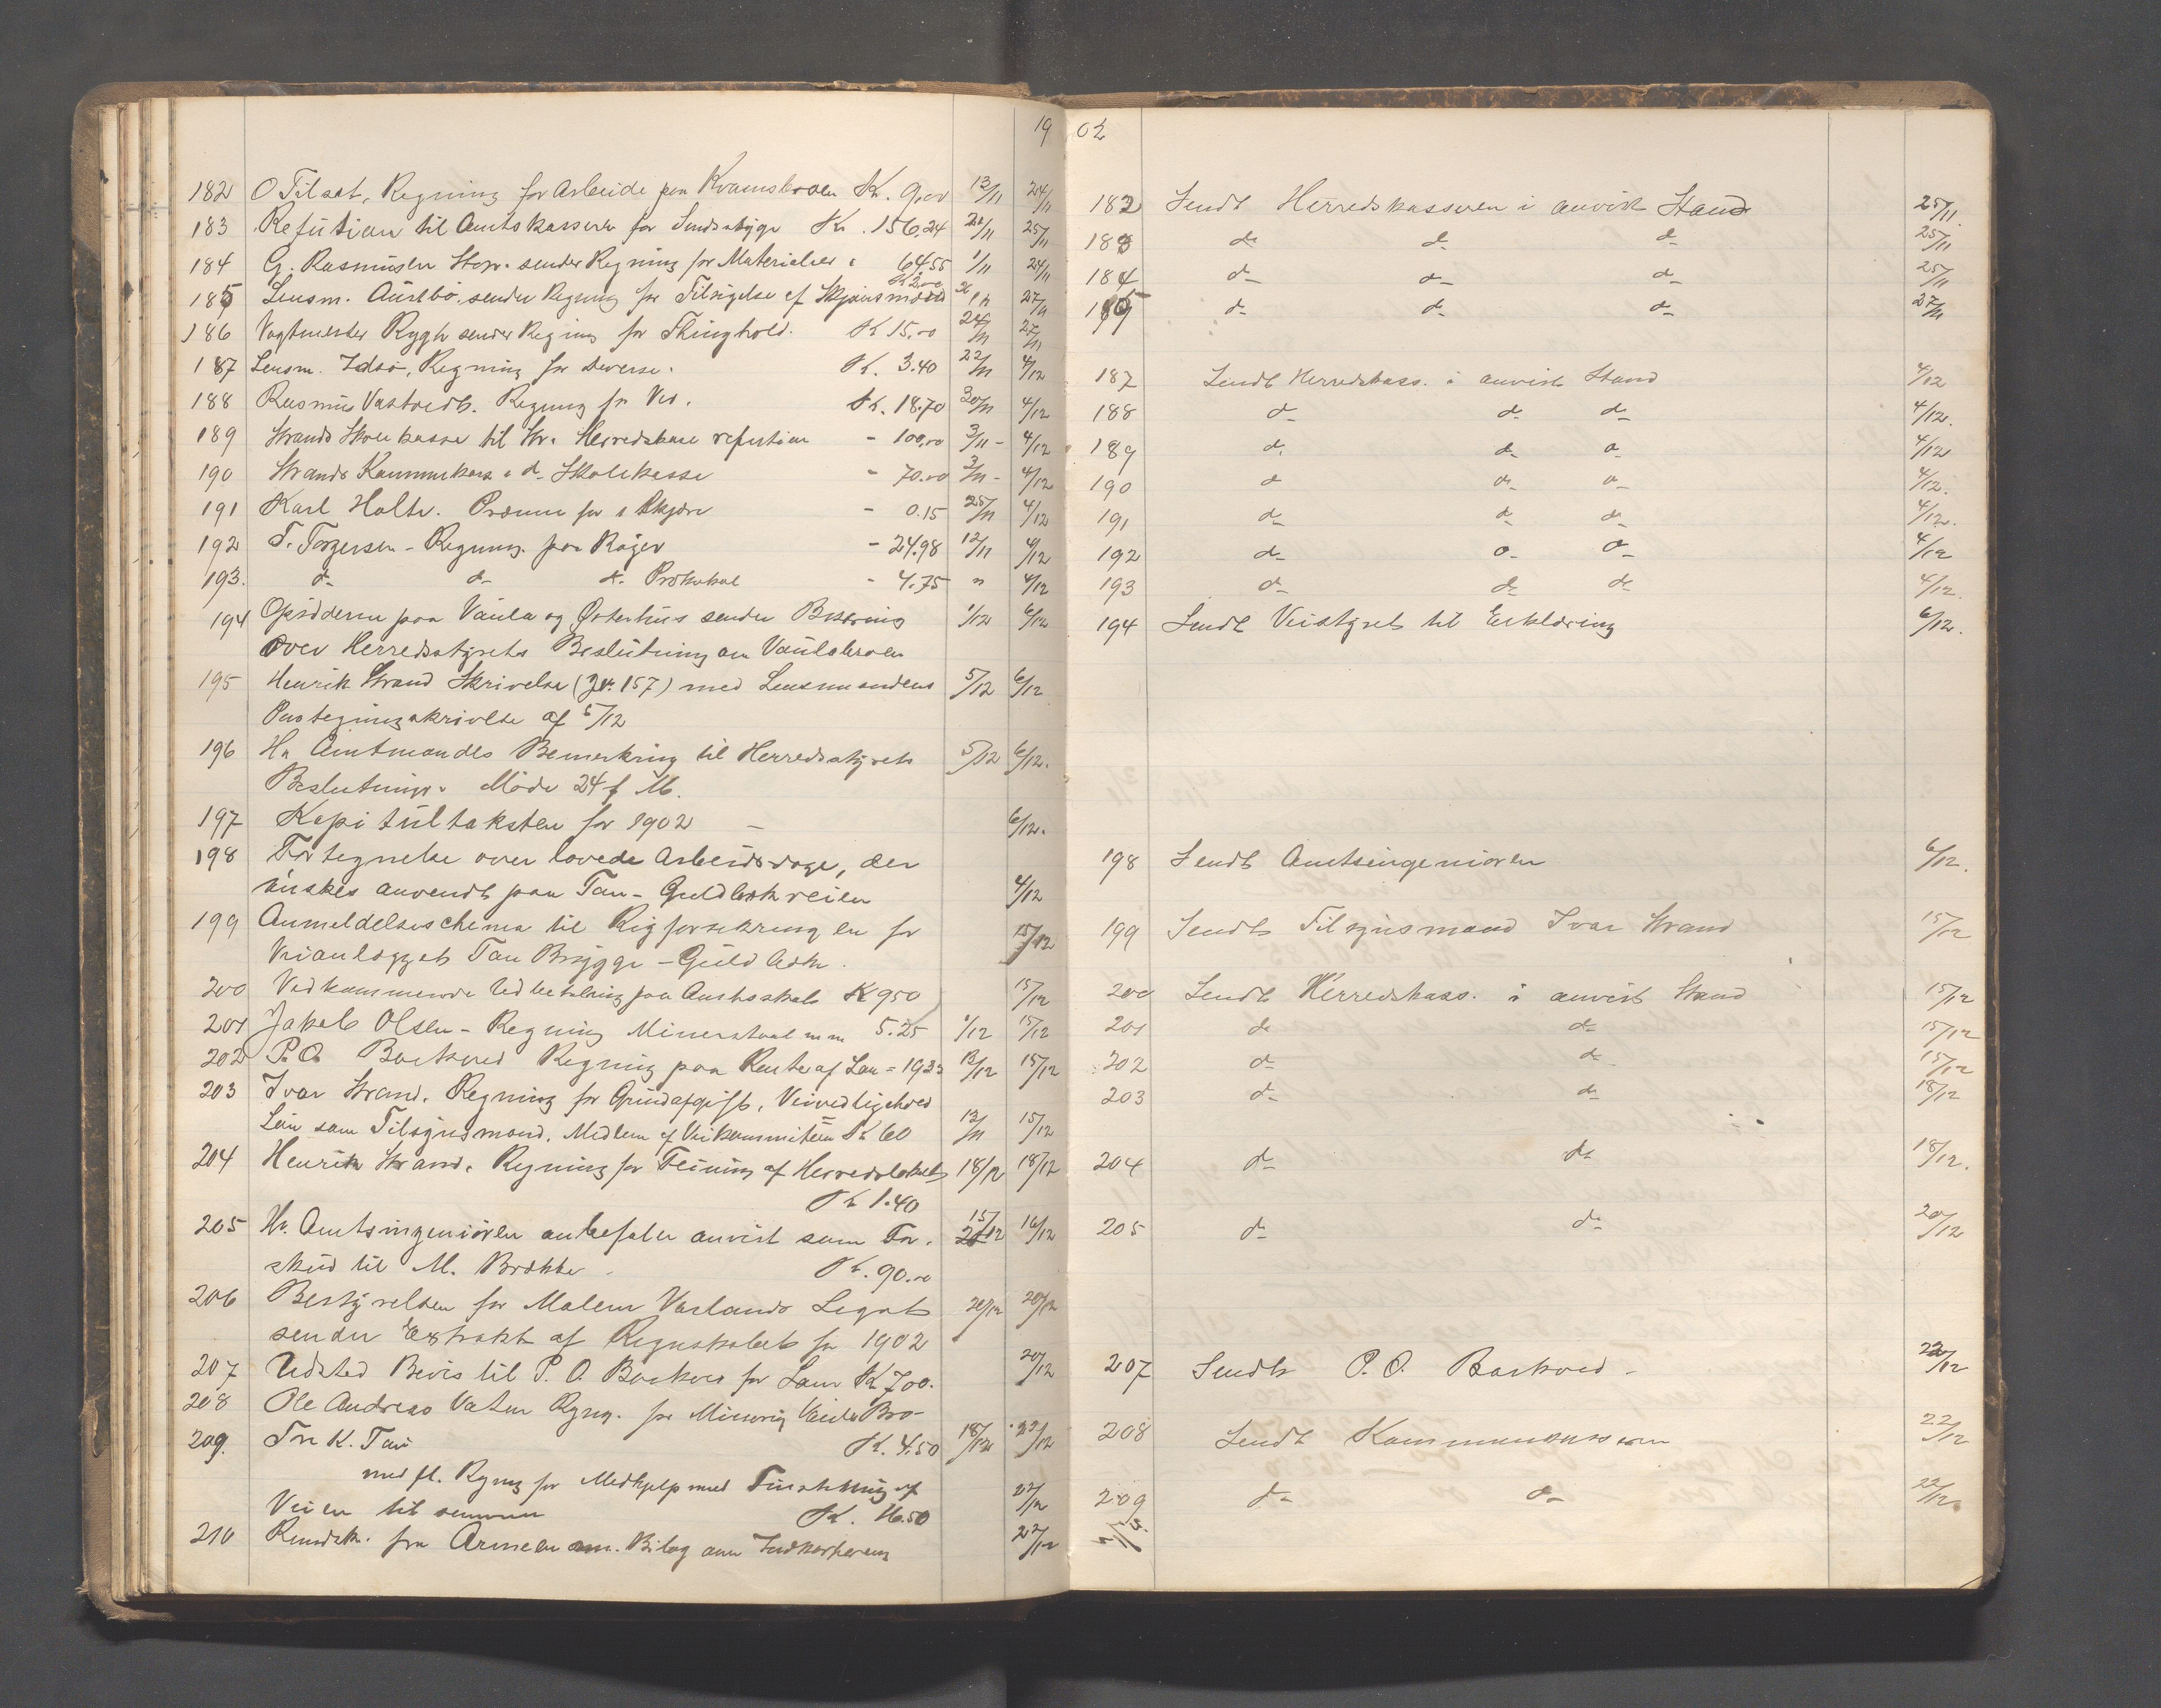 19 02
182 O Tilsat, Regning for Arbeide paa Kvamsbroen Kr. 9,00 13/11 24/11
183 Refusion til Amtskassen for Sindssyge Kr. 156,24 22/11 25/11
184 G. Rasmusen Stav. sender Regning for Materialier " 64 55 1/11 24/11
185 Lensm. Aurebø, sender Regning for Tilsigelse af Skjønsmænd 26/11 27/11
186 Vagtmester Rygh sender Regning for Thinghold. Kr 15,00 24/11 27/11
187 Lensm. Idsø, Regning for diverse. Kr. 3.40 22/11 4/12
188 Rasmus Vastvedt. Regning for Ved. Kr. 18.70 30/11 4/12
189 Strands Skolekasse til Str. Herredskasse refusion - 100,00 3/11 - 4/12
190 Strands Kommunekass " d- Skolekasse - 70.00 3/11 - 4/12
191 Karl Holte. Præmie for 1 Skjære - 0.15 25/11 4/12
192 T. Torgersen - Regning paa Bøger - 24.98 12/11 4/12
193. d- d- d- Protokol - 4.75 " 4/12
194 Opsidderne paa Vaula og Østerhus sender Besværing 1/12 6/12
over Herredsstyrets Beslutning om Vaulabroen
195 Henrik Strand Skrivelse (Jr. 157) med Lensmandens 5/12 6/12
Paategningsskrivelse af 5/12
196 Hr Amtmandes Bemerkning til Herredsstyrets 5/12 6/12.
Beslutninger Møde 24 f. M.
197 Kapitültaksten for 1902 - 6/12.
198 Fortegnelse over lovede Arbeidsdage, der
ønskes anvendt paa Tau - Guldbækveien 4/12
199 Anmeldelsesschema til Rigforsekringen for 15/12
Veianlægget Tau Brygge - Guldbæk.
200 Vedkommende Udbetaling paa Amtsskat Kr 950 15/12
201 Jakob Olsen - Regning Minerstaal m m 5.25 1/12 15/12
202 P. O. Barkved Regning paa Renter af Lån = 1933 13/12 15/12
203 Ivar Strand. Regning for Grundafgift, Veivedligehold
Løn som Tilsynsmand, Medlem af Veikommiteen Kr 60 13/11 15/12
204 Henrik Strand. Regning for Feining af Herredslokalet 18/12 18/12
Kr 1.40
205 Hr. Amtsingeniøren anbefaler anvist som For- 15/12 16/12
skud til M. Brække . Kr. 90.00
206 Bestyrelsen for Malene Varlands Legat 20/12 20/12
sender Extrakt af Regnskabet for 1902
207 Udsted Bevis til P. O. Barkved for Laan Kr 700. 20/12
208 Ole Andreas Vatne Regng. for Minering Vaula Bro-
Kr. 4.50 18/12 22/12
209. K. Tau
med fl. Regng for Medhjelp med af 22/12
Veien til samme Kr. 16.50
210 Rundsk. fra Armeen Bilag om Indkvartering 22/12
182 Sendt Herredskasseren i anvist Stand 25/11.
183 d- d- d- 25/11
184 d- d- d- 25/11
185 d- d- d- 27/11
187 Sendt Herredskass. i anvist Stand 4/12
188 d- d- d- 4/12.
189 d- d- d- 4/12
190 d- d- d- 4/12.
191 d- d- d- 4/12.
192 d- d- d- 4/12
193 d- d- d- 4/12.
194 Sendt Veistyret til Erklæring 6/12.
198 Sendt Amtsingeniøren 6/12.
199 Sendt Tilsynsmand Ivar Strand 15/12
200 Sendt Herredskass. i anvist Stand 15/12
201 d- d- 15/12
202 d- d- 15/12
203 d- d- 18/12
204 d- d- 18/12.
205 d- d- 20/12
207 Sendt P. O. Barkved - 22/12
208 Sendt Kommunekasseren 22/12
209 d- d- 22/12.